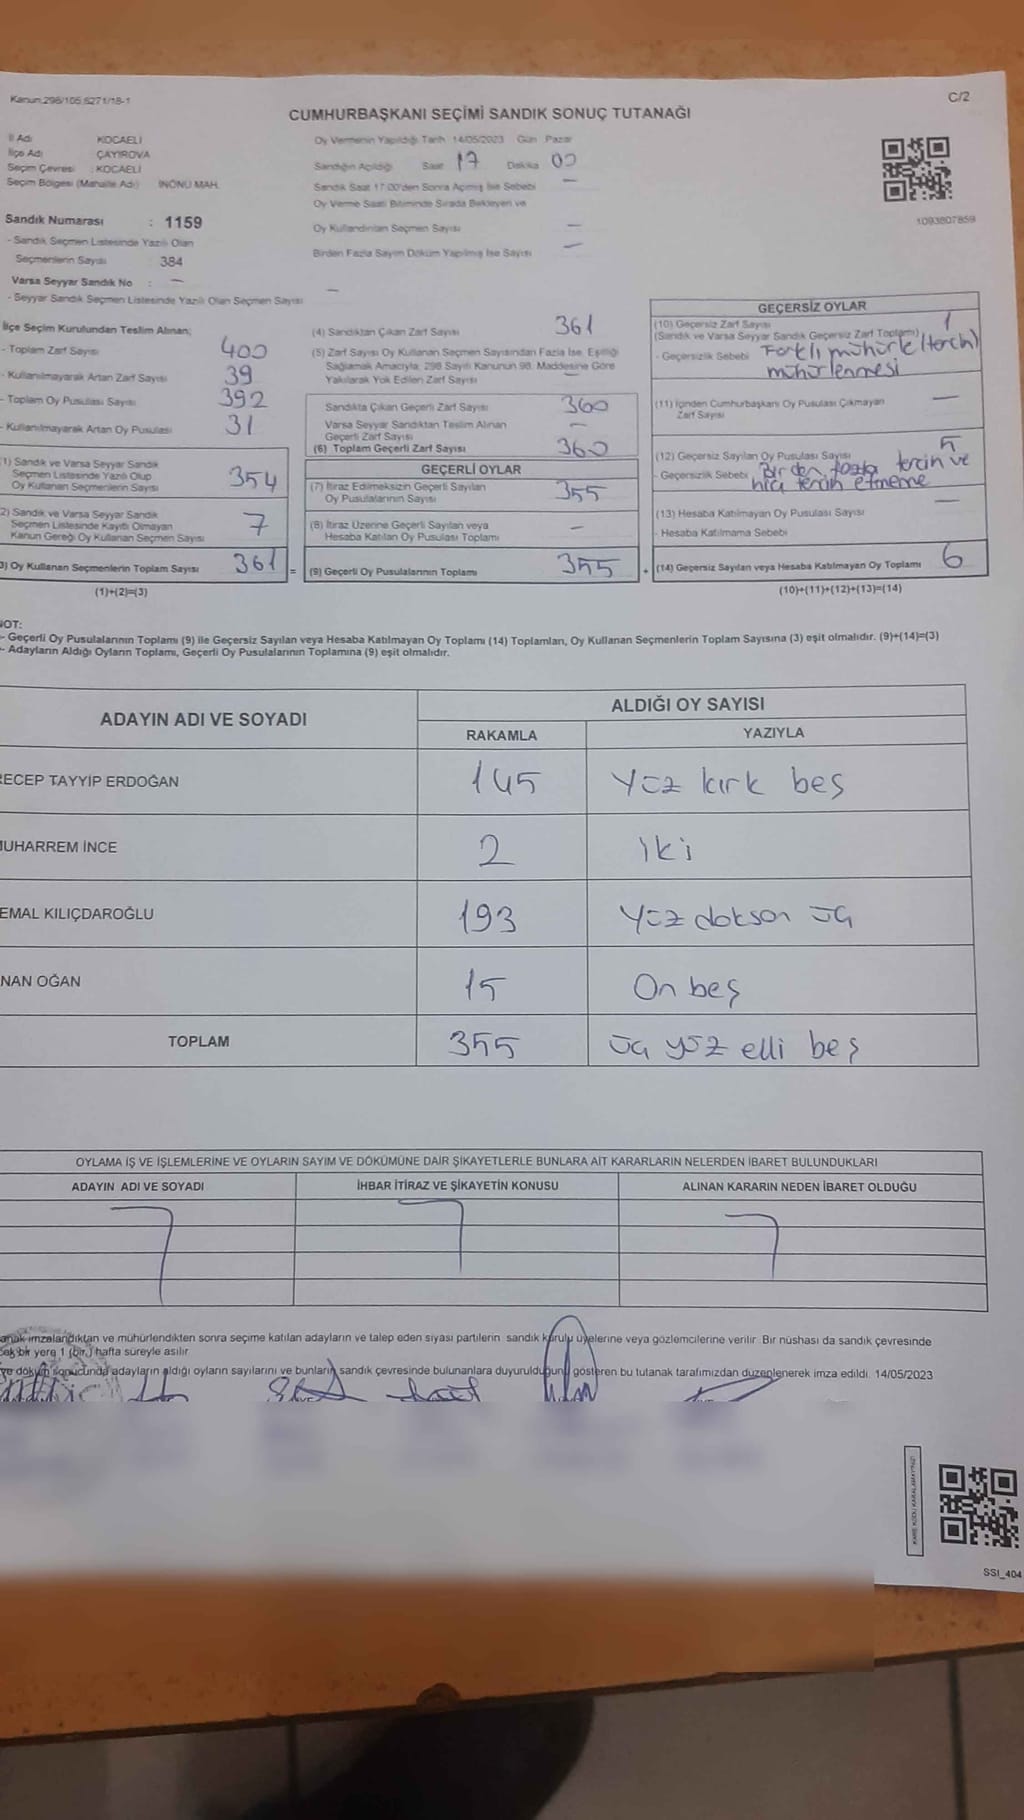 Kanun:298/105,6271/18-1
C/2
CUMHURBAŞKANI SEÇİMİ SANDIK SONUÇ TUTANAĞI
İl Adı KOCAELİ
İlçe Adı ÇAYIROVA
Seçim Çevresi : KOCAELİ
Seçim Bölgesi (Mahalle Adı) İNÖNÜ MAH.
Sandık Numarası : 1159
- Sandık Seçmen Listesinde Yazılı Olan
Seçmenlerin Sayısı : 384
Varsa Seyyar Sandık No : —
- Seyyar Sandık Seçmen Listesinde Yazılı Olan Seçmen Sayısı —
Oy Vermenin Yapıldığı Tarih 14/05/2023 Gün Pazar
Sandığın Açıldığı Saat 17 Dakika 00
Sandık Saat 17:00'den Sonra Açılmış İse Sebebi —
Oy Verme Saati Bitiminde Sırada Bekleyen ve
Oy Kullandırılan Seçmen Sayısı —
Birden Fazla Sayım Döküm Yapılmış İse Sayısı —
1093807859
İlçe Seçim Kurulundan Teslim Alınan;
- Toplam Zarf Sayısı 400
- Kullanılmayarak Artan Zarf Sayısı 39
- Toplam Oy Pusulası Sayısı 392
- Kullanılmayarak Artan Oy Pusulası 31
1) Sandık ve Varsa Seyyar Sandık
Seçmen Listesinde Yazılı Olup
Oy Kullanan Seçmenlerin Sayısı 354
2) Sandık ve Varsa Seyyar Sandık
Seçmen Listesinde Kayıtlı Olmayan
Kanun Gereği Oy Kullanan Seçmen Sayısı 7
3) Oy Kullanan Seçmenlerin Toplam Sayısı 361 =
(1)+(2)=(3)
(4) Sandıktan Çıkan Zarf Sayısı 361
(5) Zarf Sayısı Oy Kullanan Seçmen Sayısından Fazla İse, Eşitliği
Sağlamak Amacıyla, 298 Sayılı Kanunun 98. Maddesine Göre
Yakılarak Yok Edilen Zarf Sayısı —
Sandıkta Çıkan Geçerli Zarf Sayısı 360
Varsa Seyyar Sandıktan Teslim Alınan
Geçerli Zarf Sayısı —
(6) Toplam Geçerli Zarf Sayısı 360
GEÇERLİ OYLAR
(7) İtiraz Edilmeksizin Geçerli Sayılan
Oy Pusulalarının Sayısı 355
(8) İtiraz Üzerine Geçerli Sayılan veya
Hesaba Katılan Oy Pusulası Toplamı —
(9) Geçerli Oy Pusulalarının Toplamı 355 +
GEÇERSİZ OYLAR
(10) Geçersiz Zarf Sayısı 1
(Sandık ve Varsa Seyyar Sandık Geçersiz Zarf Toplamı)
- Geçersizlik Sebebi Farklı mühürle (tercih)
mühürlenmesi
(11) İçinden Cumhurbaşkanı Oy Pusulası Çıkmayan
Zarf Sayısı —
(12) Geçersiz Sayılan Oy Pusulası Sayısı 5
- Geçersizlik Sebebi Birden fazla tercih ve
hiç tercih etmeme
(13) Hesaba Katılmayan Oy Pusulası Sayısı —
- Hesaba Katılmama Sebebi
(14) Geçersiz Sayılan veya Hesaba Katılmayan Oy Toplamı 6
(10)+(11)+(12)+(13)=(14)
NOT:
- Geçerli Oy Pusulalarının Toplamı (9) ile Geçersiz Sayılan veya Hesaba Katılmayan Oy Toplamı (14) Toplamları, Oy Kullanan Seçmenlerin Toplam Sayısına (3) eşit olmalıdır. (9)+(14)=(3)
- Adayların Aldığı Oyların Toplamı, Geçerli Oy Pusulalarının Toplamına (9) eşit olmalıdır.
ADAYIN ADI VE SOYADI ALDIĞI OY SAYISI
RAKAMLA YAZIYLA
RECEP TAYYİP ERDOĞAN 145 Yüz kırk beş
MUHARREM İNCE 2 iki
EMAL KILIÇDAROĞLU 193 Yüz doksan üç
NAN OĞAN 15 On beş
TOPLAM 355 üç yüz elli beş
OYLAMA İŞ VE İŞLEMLERİNE VE OYLARIN SAYIM VE DÖKÜMÜNE DAİR ŞİKAYETLERLE BUNLARA AİT KARARLARIN NELERDEN İBARET BULUNDUKLARI
ADAYIN ADI VE SOYADI İHBAR İTİRAZ VE ŞİKAYETİN KONUSU ALINAN KARARIN NEDEN İBARET OLDUĞU
anak imzalandıktan ve mühürlendikten sonra seçime katılan adayların ve talep eden siyasi partilerin sandık kurulu üyelerine veya gözlemcilerine verilir. Bir nüshası da sandık çevresinde
cek bir yere 1 (bir) hafta süreyle asılır
ve döküm sonucunda adayların aldığı oyların sayılarını ve bunların sandık çevresinde bulunanlara duyurulduğunu gösteren bu tutanak tarafımızdan düzenlenerek imza edildi. 14/05/2023
KARE KODU KARALAMAYINIZ!
SSI_404